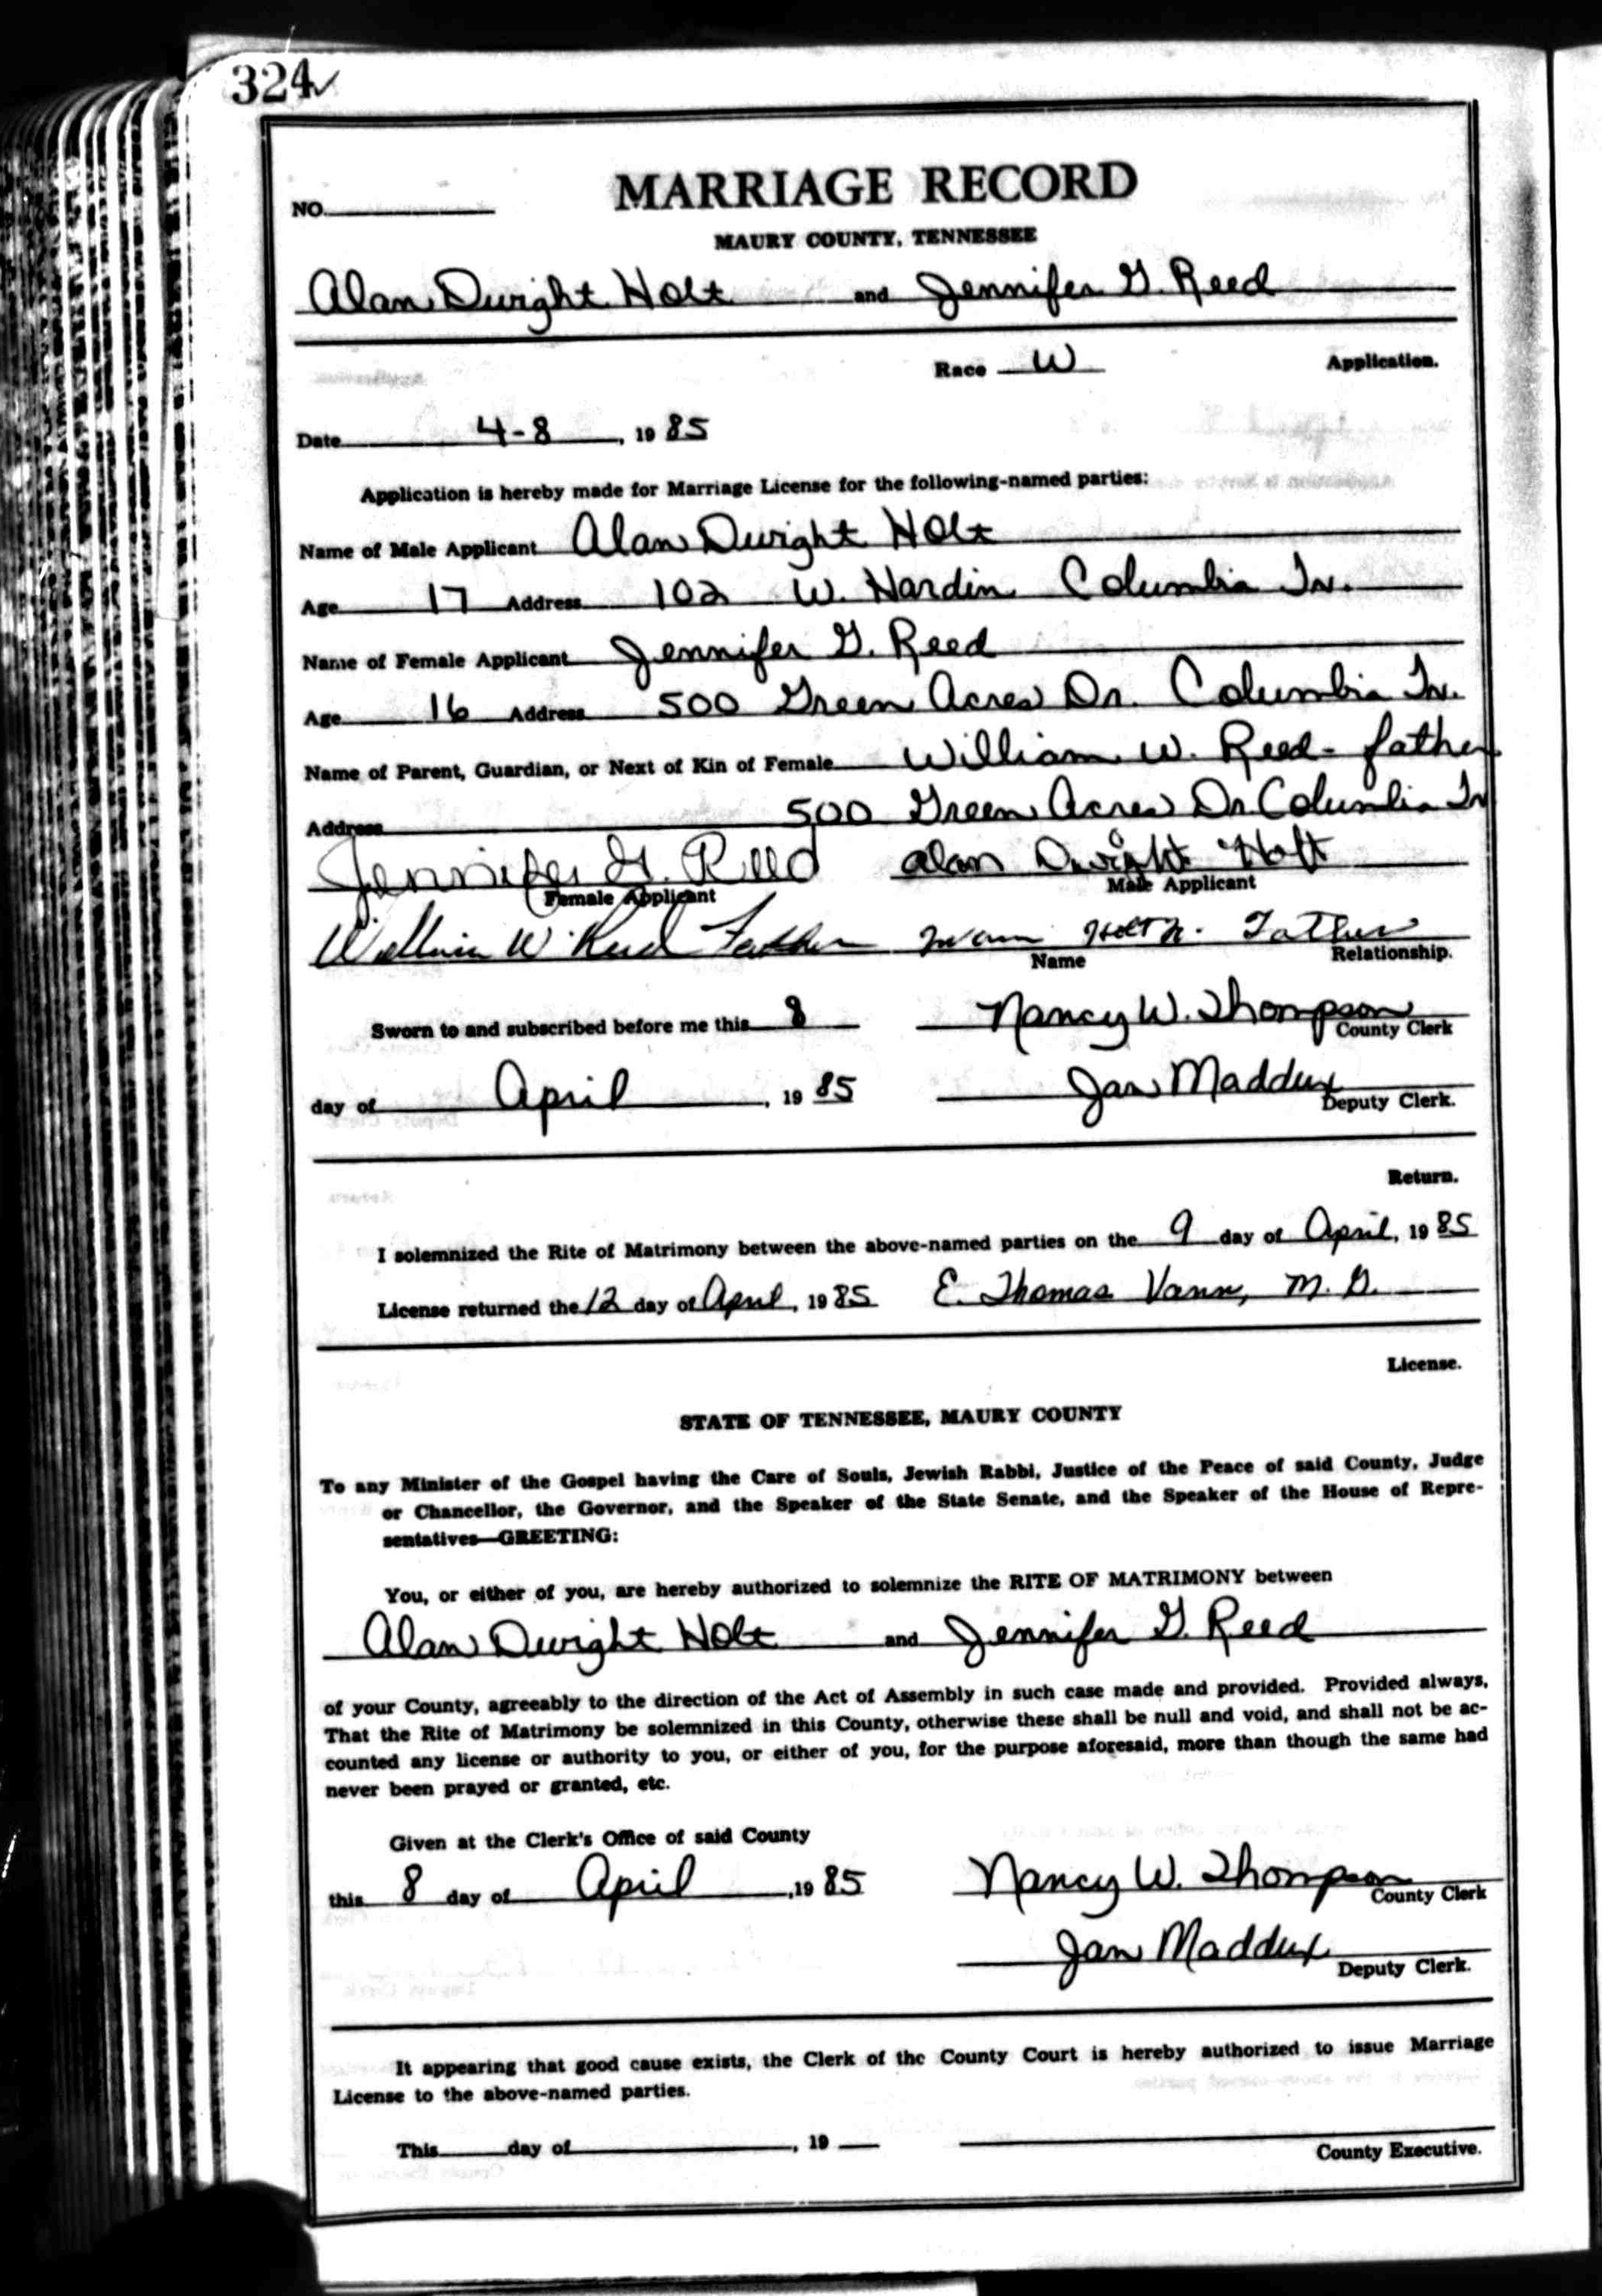 324✓
NO.
MARRIAGE RECORD
MAURY COUNTY, TENNESSEE
Alan Dwight Holt and Jennifer G. Reed
Race W Application.
Date 4-8, 19 85
Application is hereby made for Marriage License for the following-named parties:
Name of Male Applicant Alan Dwight Holt
Age 17 Address 102 W. Hardin Columbia Tn.
Name of Female Applicant Jennifer G. Reed
Age 16 Address 500 Green Acres Dr. Columbia Tn.
Name of Parent, Guardian, or Next of Kin of Female William W. Reed - father
Address 500 Green Acres Dr. Columbia Tn
Jennifer G. Reed Alan Dwight Holt
Female Applicant Male Applicant
William W. Reed Father Holt Jr. Father
Name Relationship.
Sworn to and subscribed before me this 8 Nancy W. Thompson
County Clerk
day of April, 19 85 Jan Maddux
Deputy Clerk.
Return.
I solemnized the Rite of Matrimony between the above-named parties on the 9 day of April, 19 85
License returned the 12 day of April, 19 85 E. Thomas Vann, M. G.
License.
STATE OF TENNESSEE, MAURY COUNTY
To any Minister of the Gospel having the Care of Souls, Jewish Rabbi, Justice of the Peace of said County, Judge
or Chancellor, the Governor, and the Speaker of the State Senate, and the Speaker of the House of Repre-
sentatives—GREETING:
You, or either of you, are hereby authorized to solemnize the RITE OF MATRIMONY between
Alan Dwight Holt and Jennifer G. Reed
of your County, agreeably to the direction of the Act of Assembly in such case made and provided. Provided always,
That the Rite of Matrimony be solemnized in this County, otherwise these shall be null and void, and shall not be ac-
counted any license or authority to you, or either of you, for the purpose aforesaid, more than though the same had
never been prayed or granted, etc.
Given at the Clerk's Office of said County
this 8 day of April, 19 85 Nancy W. Thompson
County Clerk
Jan Maddux
Deputy Clerk.
It appearing that good cause exists, the Clerk of the County Court is hereby authorized to issue Marriage
License to the above-named parties.
This day of , 19
County Executive.